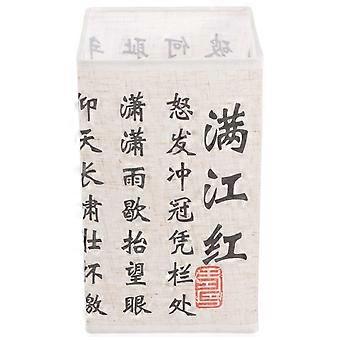 满江红
怒发冲冠凭栏处
潇潇雨歇抬望眼
仰天长肃壮怀激
破何耻